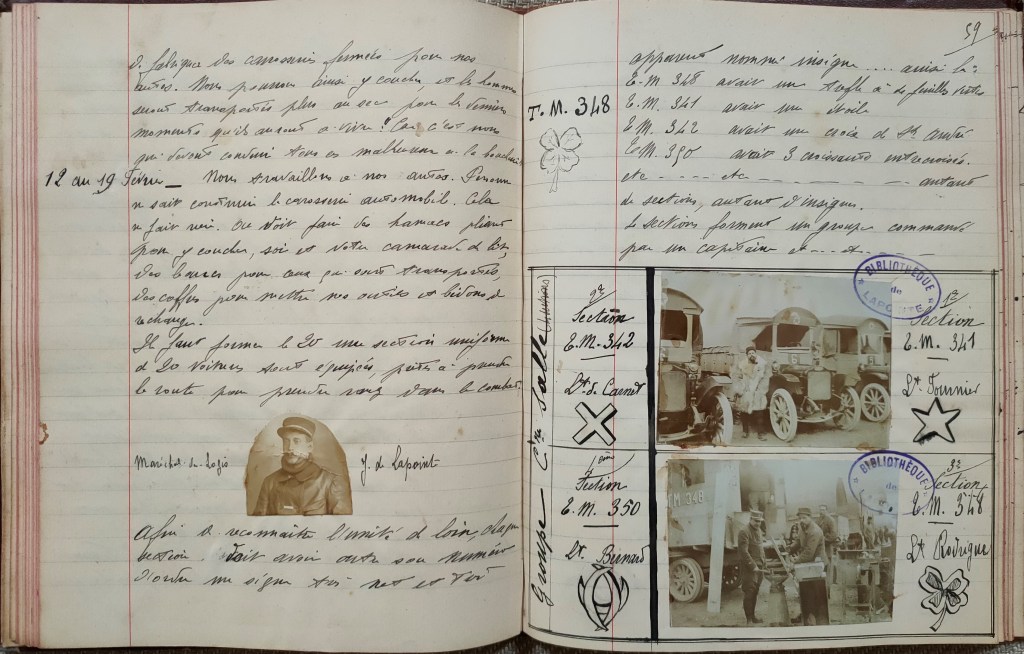 de fabriquer des carrosseries fermées pour nos
autos. Nous pourrons ainsi y coucher, et les hommes
seront transportés plus au sec pour les derniers
moments qu'ils auront à vivre! Car c'est nous
qui devons conduire tous ces malheureux à la boucherie
12 au 19 Février _ Nous travaillons à nos autos. Personne
ne sait construire la carosserie automobile. Cela
ne fait rien. On doit faire des hamacs pliants
pour y coucher, soi et votre camarade de
des bancs pour ceux qui sont transportés,
des coffres pour mettre nos outils et bidons de
rechange.
Il faut former le 20 une section uniforme
de 20 voitures toutes équipées prêtes à prendre
la route pour prendre rang dans le combat.
Maréchal-de-Logis
J. de Lapointe
Afin de reconnaître l'unité de loin, chaque
section doit avoir outre son numéro
d'ordre un signe très net et très
59
apparent nommé insigne .... ainsi la
T.M. 348 avait un trèfle à 4 feuilles vertes
T.M. 341 avait une étoile
T.M. 342 avait une croix de St André
T.M. 350 avait 3 croissants entrecroisés.
etc - - - - etc - - - - - - - autant
de sections, autant d'insignes.
Les sections forment un groupe commandé
par un capitaine
T.M. 348
Groupe Cne Salle
2e
Section
T.M. 342
Lt de Carnet
4ème
Section
T.M. 350
Lt. Bernard
BIBLIOTHÈQUE
de
LAPOINTE
1e
Section
T.M. 341
Lt. Fournier
TM 348
BIBLIOTHÈQUE
de
3e
Section
T.M. 348
Lt Rodrigue